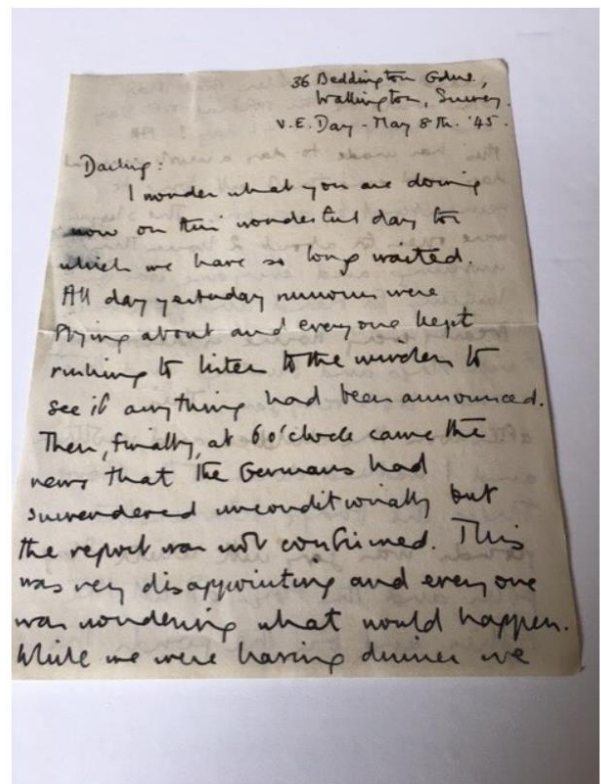 36 Beddington Gdns,
Wallington, Surrey.
V.E. Day - May 8th. '45.
Darling:
I wonder what you are doing
now on this wonderful day for
which we have so long waited.
All day yesterday rumours were
flying about and everyone kept
rushing to listen to the wireless to
see if anything had been announced.
Then, finally, at 6 o'clock came the
news that the Germans had
surrendered unconditionally but
the report was not confirmed. This
was very disappointing and everyone
was wondering what would happen.
While we were having dinner we